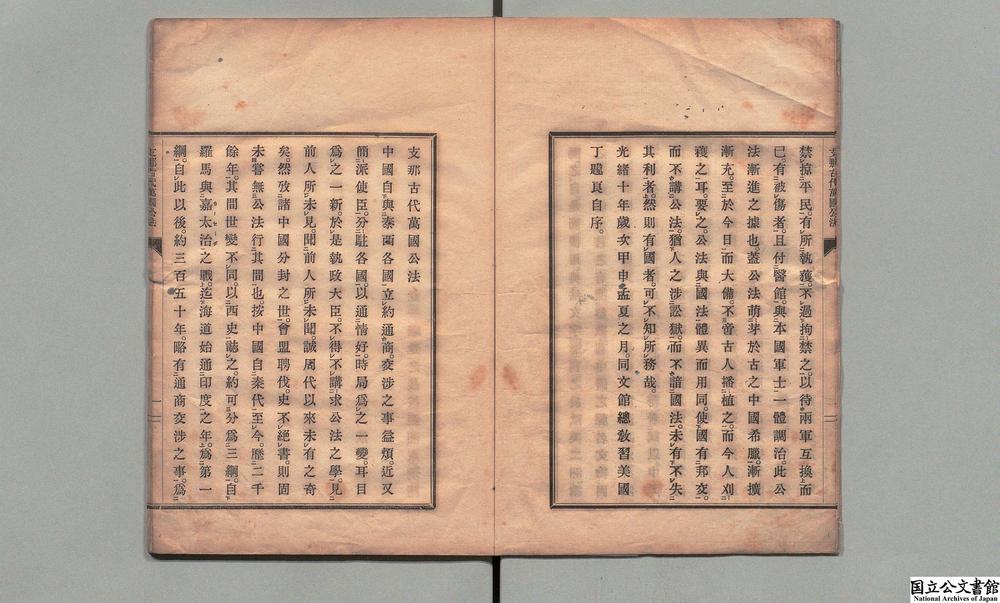 禁掠平民。有所執獲。不過拘禁之。以待兩軍互換而
已。有被傷者。且付醫館。與本國軍士一體調治。此公
法漸進之據也。蓋公法萌芽於古之中國希臘。漸擴
漸充。至於今日而大備。不啻古人播植之。而今人刈
穫之耳。要之。公法與國法體異而用同。使國有邦交。
而不講公法。猶人之涉訟獄。而不諳國法。未有不失
其利者。然則有國者。可不知所務哉。
光緒十年歲次甲申孟夏之月。同文館總敎習美國
丁韙良自序。
支那古代萬國公法
支那古代萬國公法
中國自與泰西各國立約通商。交涉之事益煩。近又
簡派使臣。分駐各國。以通情好。時局爲之一變。耳目
爲之一新。於是執政大臣。不得不講求公法之學。見
前人所未見。聞前人所未聞。誠周代以來未有之奇
矣。然攷諸中國分封之世。會盟聘伐。史不絕書。則固
未嘗無公法行其間也。按中國自秦代至今。歷二千
餘年。其間世變不同。以西史誌之。約可分爲三綱。自
羅馬與嘉太治之戰。迄海道始通印度之年。爲第一
綱。自此以後。約三百五十年。略有通商交涉之事。爲
支那古代萬國公法
一
国立公文書館
National Archives of Japan